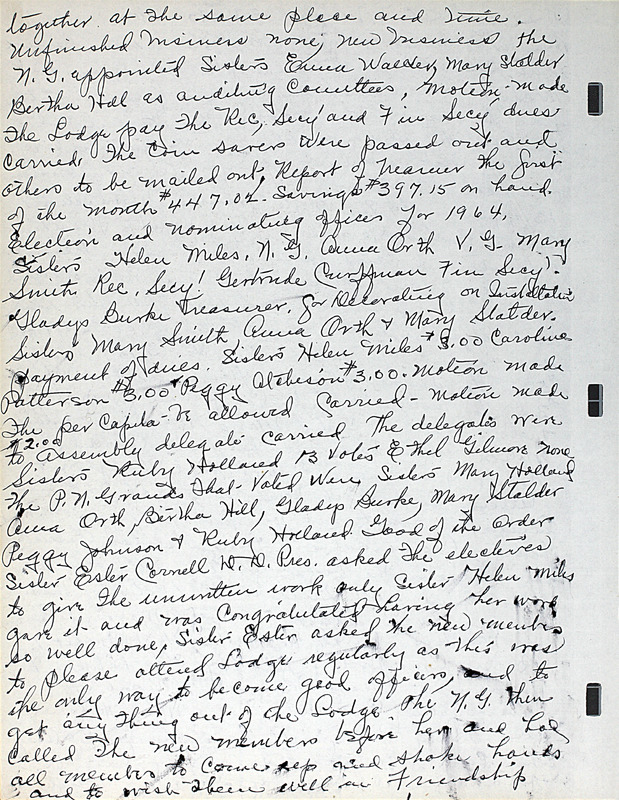 together at the same place and time.
Unfinished business none, new business the
N. G. appointed Sisters Emma Walder, Mary Stalder
Bertha Hill as auditing Committee, motion-made
The Lodge pay the Rec, Secy and Fin Secy dues
carried. The Coin savers were passed out and
others to be mailed out. Report of the first
of the month #447.02. Savings #397.15 on hand.
Election and nominating offices for 1964.
Sisters Helen Miles, N. G. Anna Orth V. G. Mary
Smith Rec. Secy! Gertrude Fin Secy!
Gladys Burke Treasurer. for Decorating on Installation
Sisters Mary Smith, Anna Orth & Mary Stalder.
Payment of dues. Sisters Helen Miles #3.00 Caroline
Patterson #3.00 Peggy #3.00. Motion made
The per Capita be allowed Carried - motion made
#2.00
to Assembly delegate carried The delegates were
Sisters Ruby Holland 13 Votes Ethel Gilmore none
The P. N. Grands That Voted Were Sisters Mary Holland
Anna Orth, Bertha Hill, Gladys Burke, Mary Stalder
Peggy Johnson & Ruby Holland Good of the Order
Sister Ester Cornell D. D. Pres. asked the electives
to give the unwritten work only Sister Helen Miles
gave it and was Congratulated having her work
so well done, Sister Ester asked the new members
to please attend Lodge regularly as this was
the only way to become good officers, and to
get any thing out of the Lodge The N. G. then
called The new members before her and had
all members to come up and shake hands
and to wish them well in Friendship